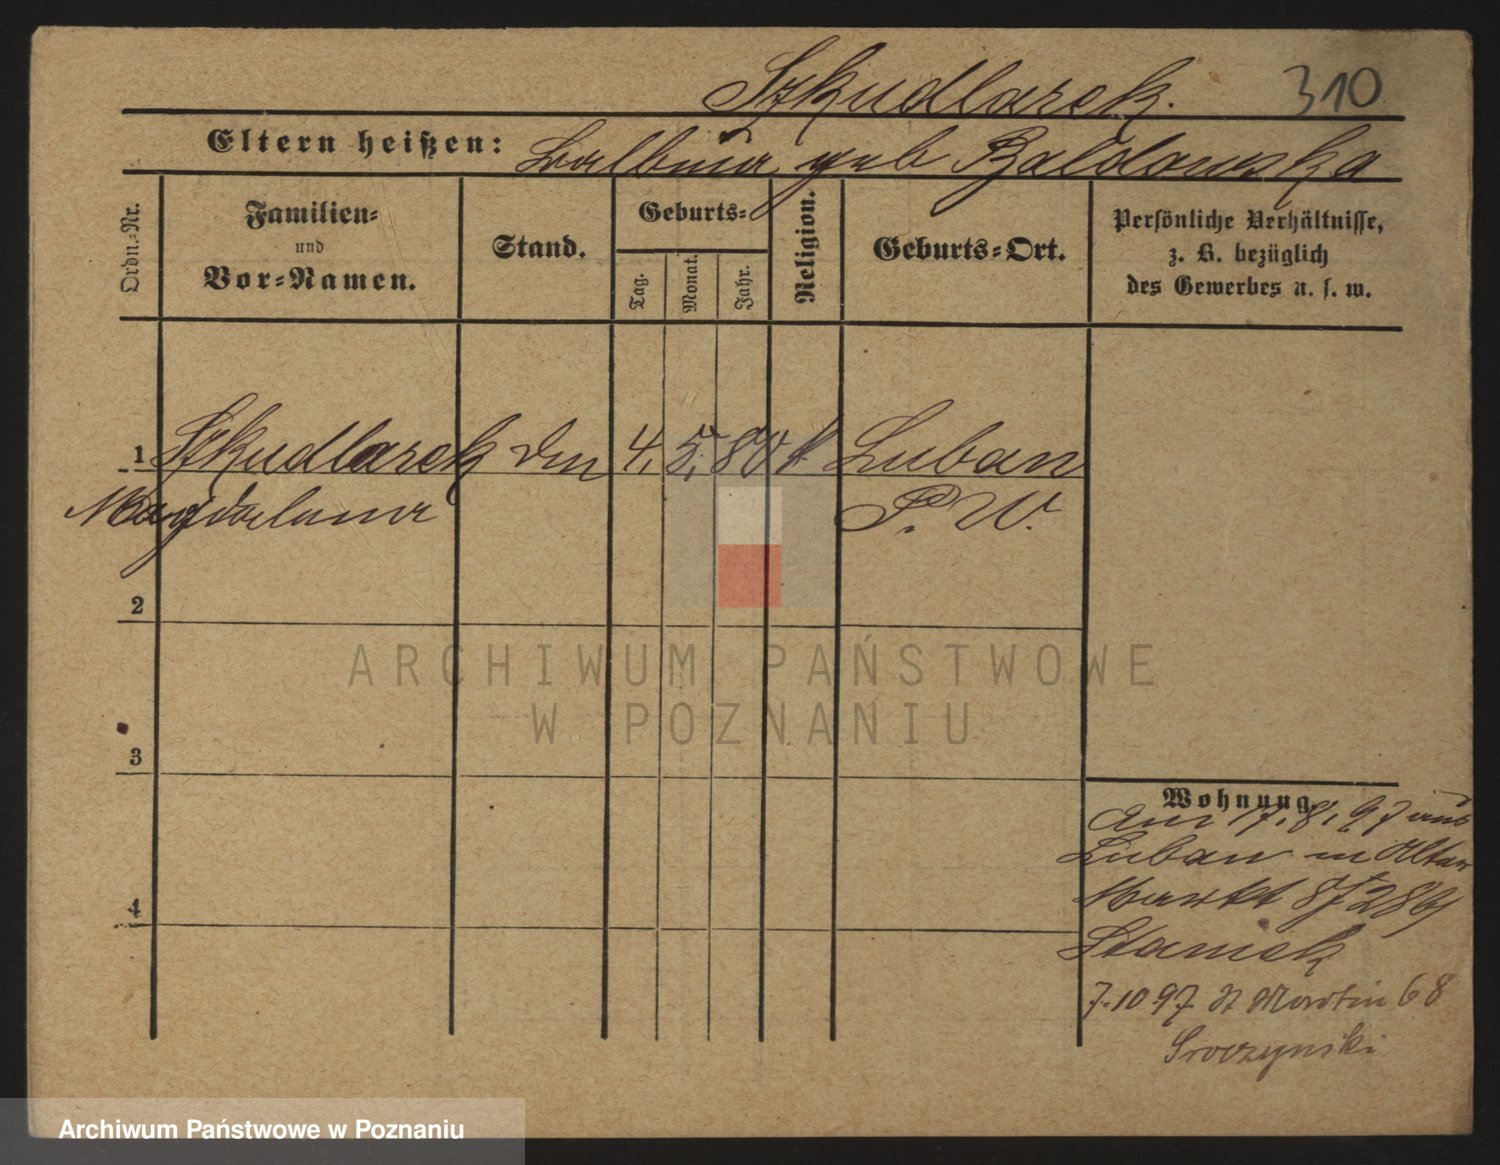 Szkudlarek.
310
Eltern heißen: Balbina geb Baldowska
Ordn.-Nr.
Familien-
und
Vor-Namen.
Stand.
Geburts-
Tag.
Monat.
Jahr.
Religion.
Geburts-Ort.
Persönliche Verhältnisse,
z. B. bezüglich
des Gewerbes u. s. w.
1 Szkudlarek 4. 5. 80 k Luban
Magdalena P. W.
2
3
4
Wohnung.
17. 8. 97 aus
Luban Alter
Markt
Stanick
7.10.97. St Martin 68
Sroczynski
ARCHIWUM PAŃSTWOWE
W POZNANIU
Archiwum Państwowe w Poznaniu